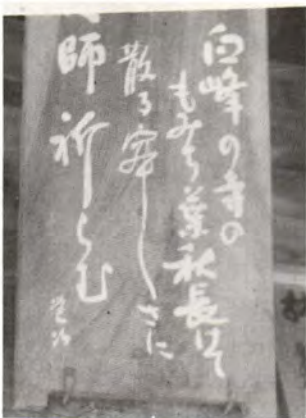 白峰の寺の
もみち葉秋長けて
散る寂しさに
師祈らむ